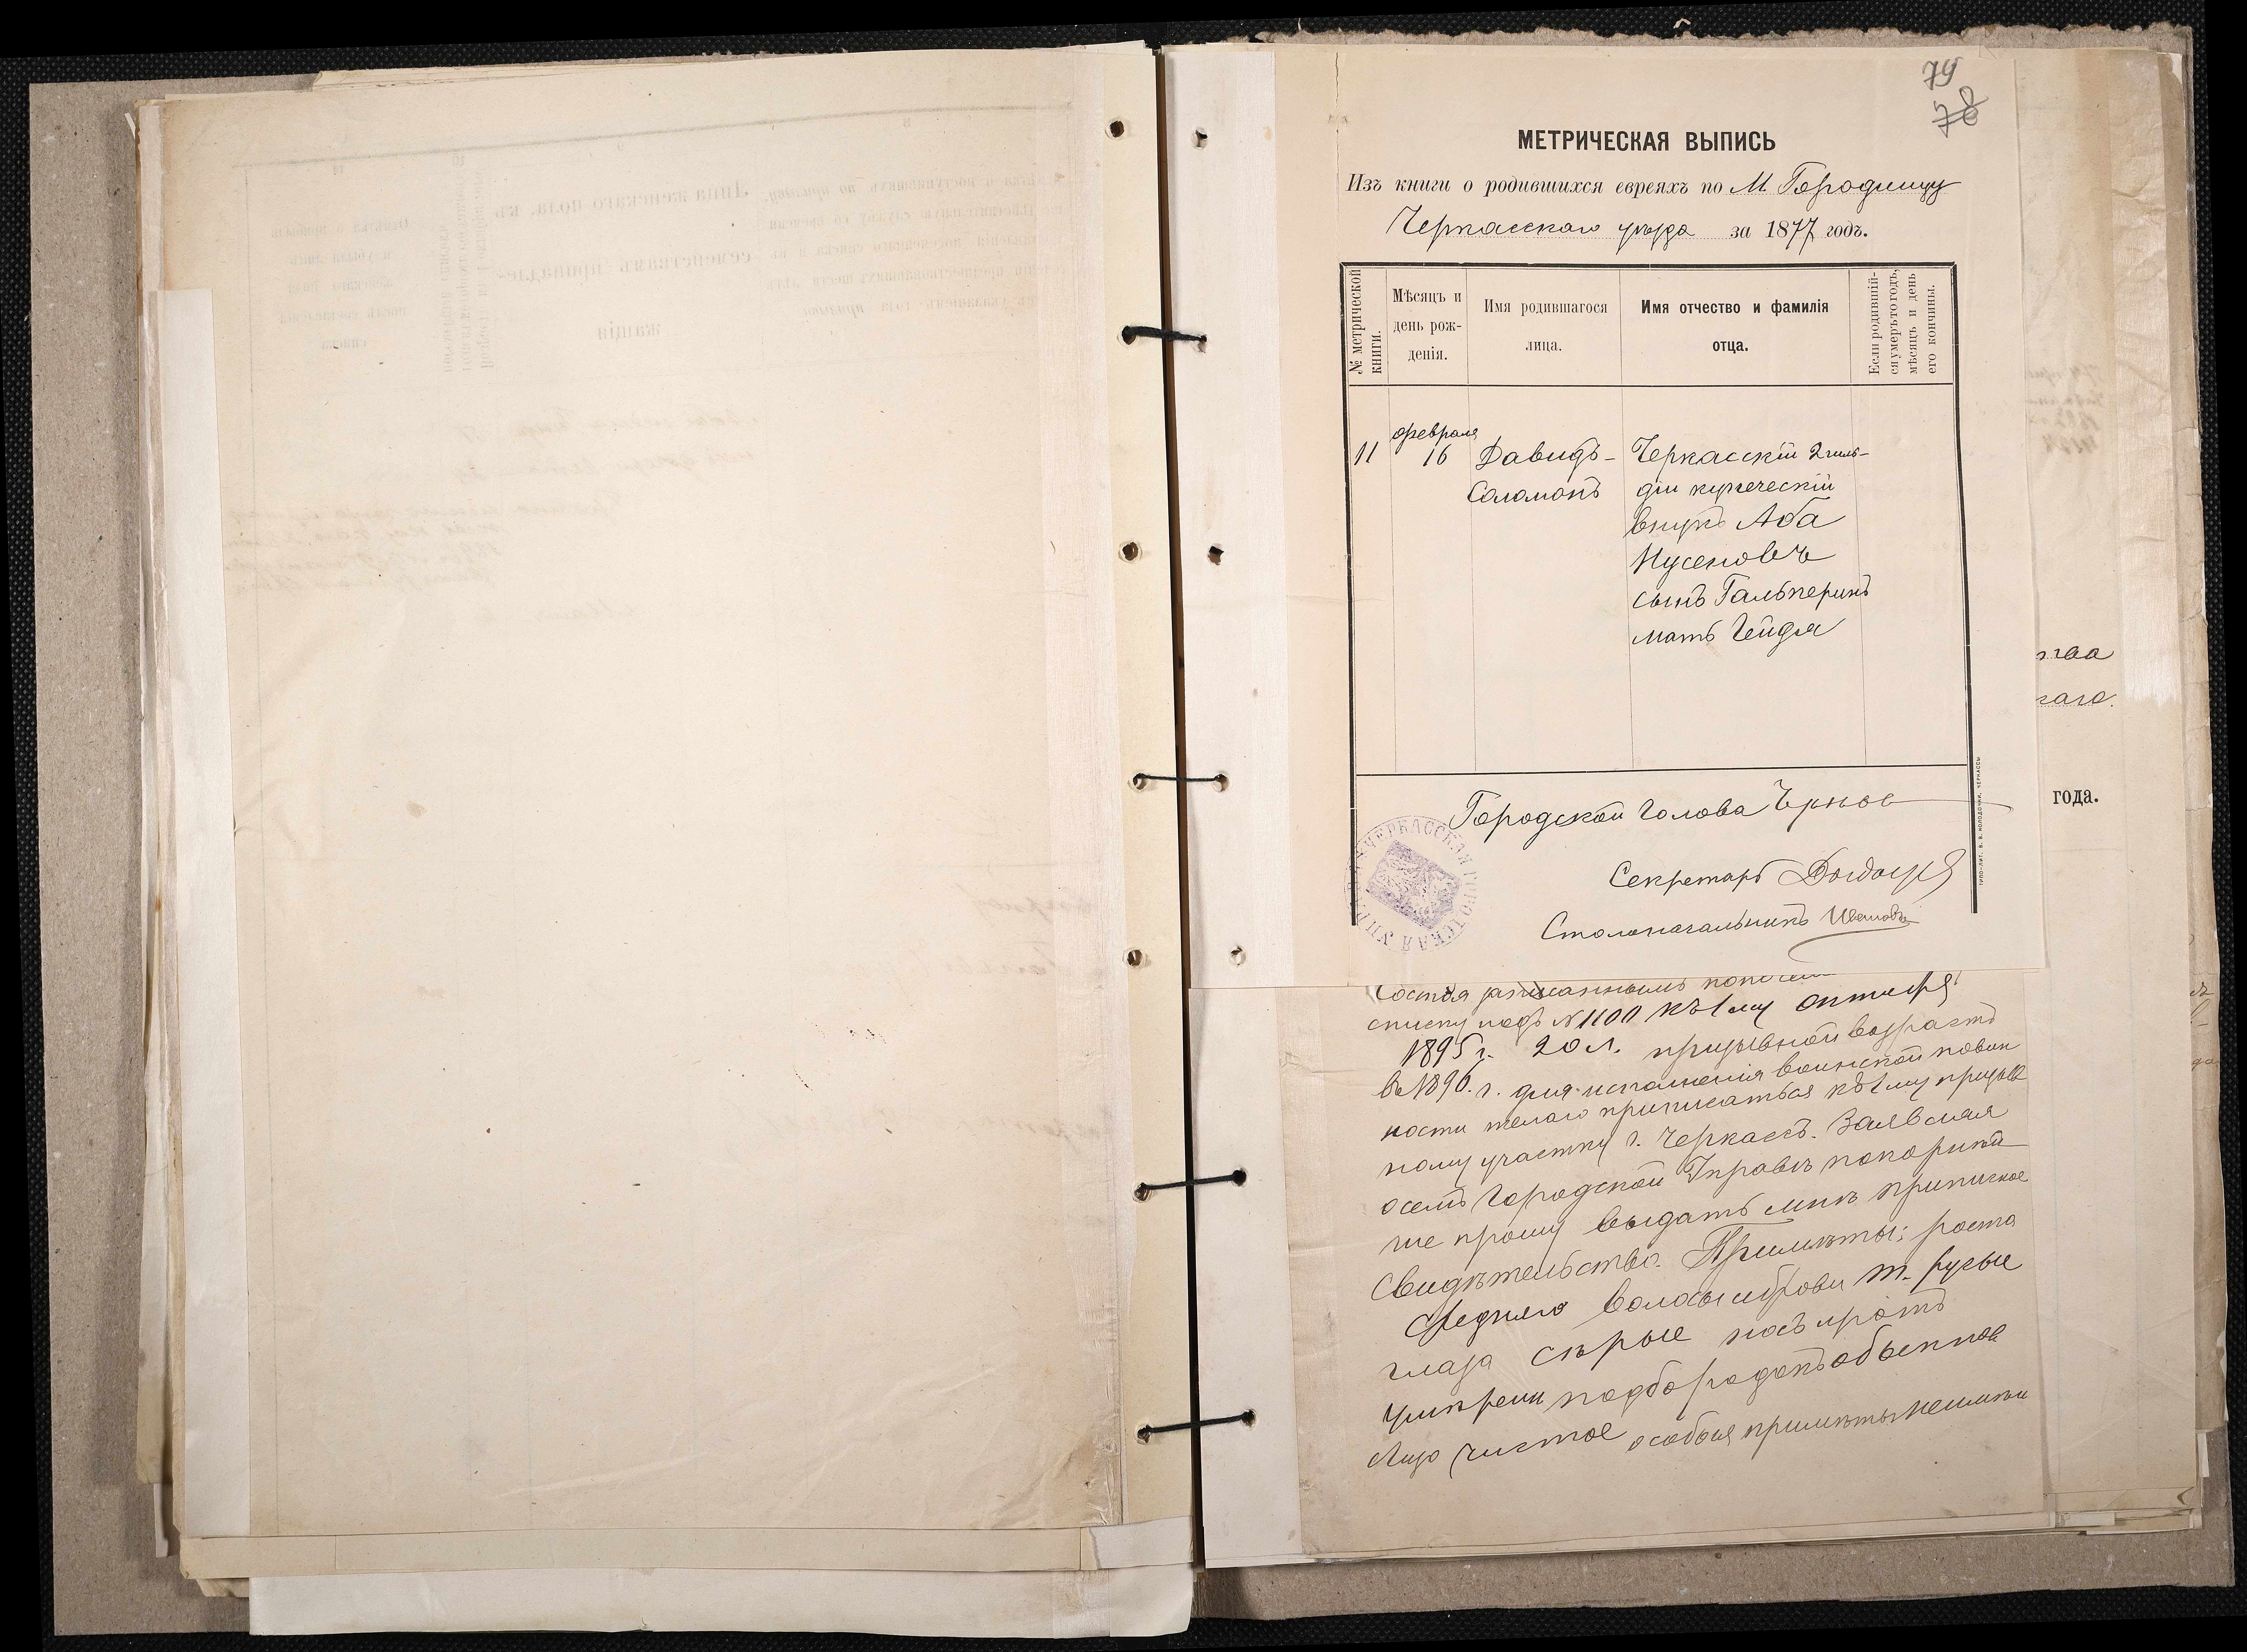 79
78
МЕТРИЧЕСКАЯ ВЫПИСЬ
Изъ книги о родившихся евреяхъ по М. Городищу
Черкасскаго уѣзда за 1877 годъ.
№ метрической книги.
Мѣсяцъ и день рожденія.
Имя родившагося лица.
Имя отчество и фамилія отца.
Если родившійся умеръ то годъ, мѣсяцъ и день его кончины.
11
февраля
16
Давидъ-
Соломонъ
Черкасскій 2 гиль-
діи купеческій
внукъ Аба
Нусеновъ
сынъ Гальперинъ
мать Гейдля
Городской Голова
Секретарь
Столоначальникъ Ивановъ
ЧЕРКАССКАЯ ГОРОДСКАЯ УПРАВА
ТИПО-ЛИТ. В. В. КОЛОДОЧКИ, ЧЕРКАССЫ
года.
Состоя
списку подъ № 1100 къ 1 му октября
1895 г. 20 л. призывной возрастъ
въ 1896. г. для исполненія воинской повин
ности желаю приписаться къ 1 му призыв
ному участку г. Черкассъ. Заявляя
о семъ Городской Управѣ покорнѣй
ше прошу выдать мнѣ приписное
Свидѣтельство. Примѣты: роста
средняго волосы и брови т. русые
глаза сѣрые носъ и ротъ
умѣрены подбородокъ обыкнов
лицо чистое особыя примѣты неимѣи